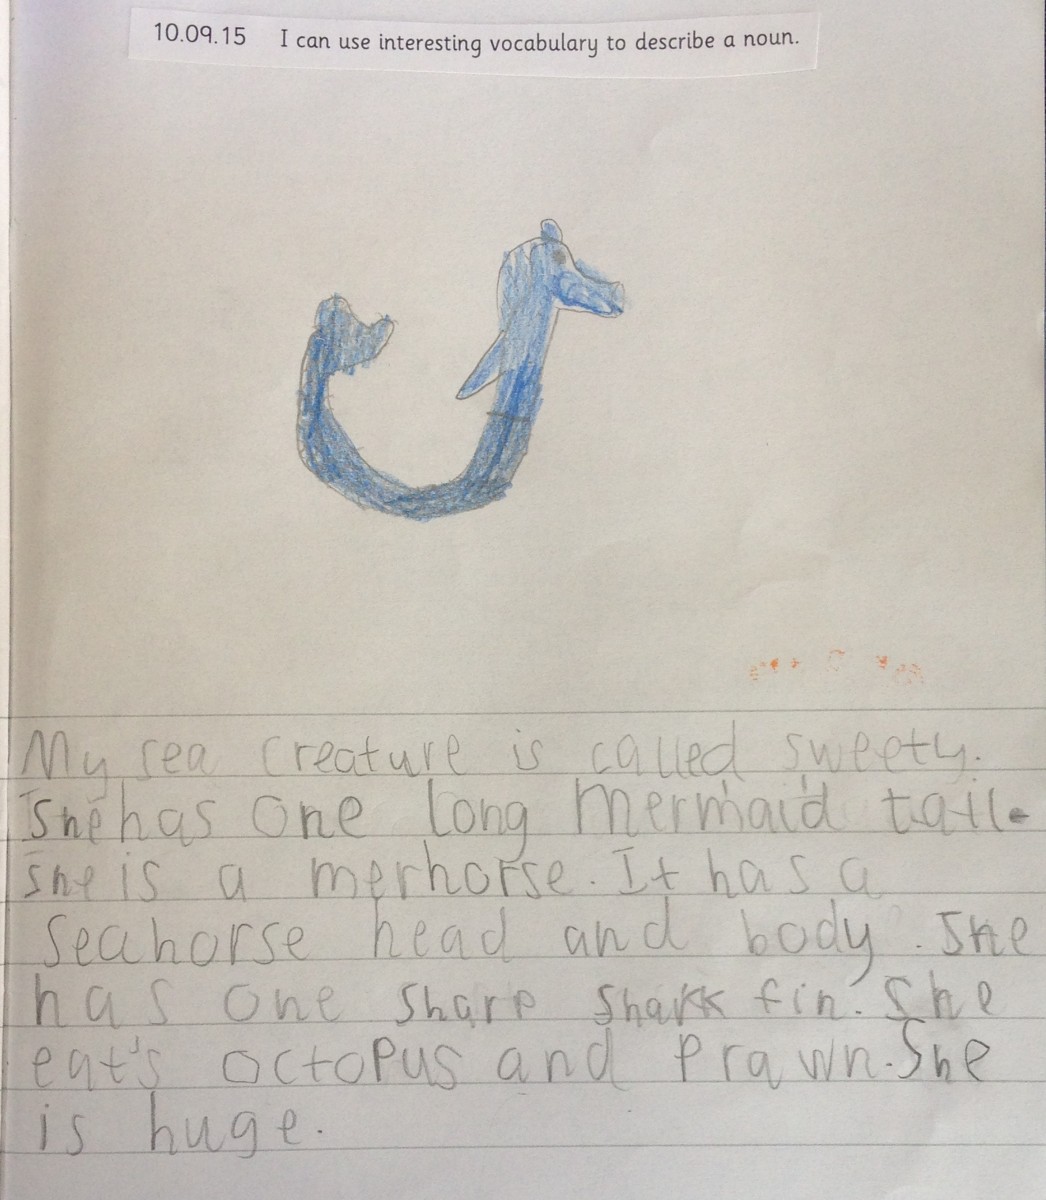 10.09.15 I can use interesting vocabulary to describe a noun.
My sea creature is called sweety.
She has one long mermaid tail.
She is a merhorse. It has a
seahorse head and body. She
has one sharp shark fin. She
eat's octopus and prawn. She
is huge.